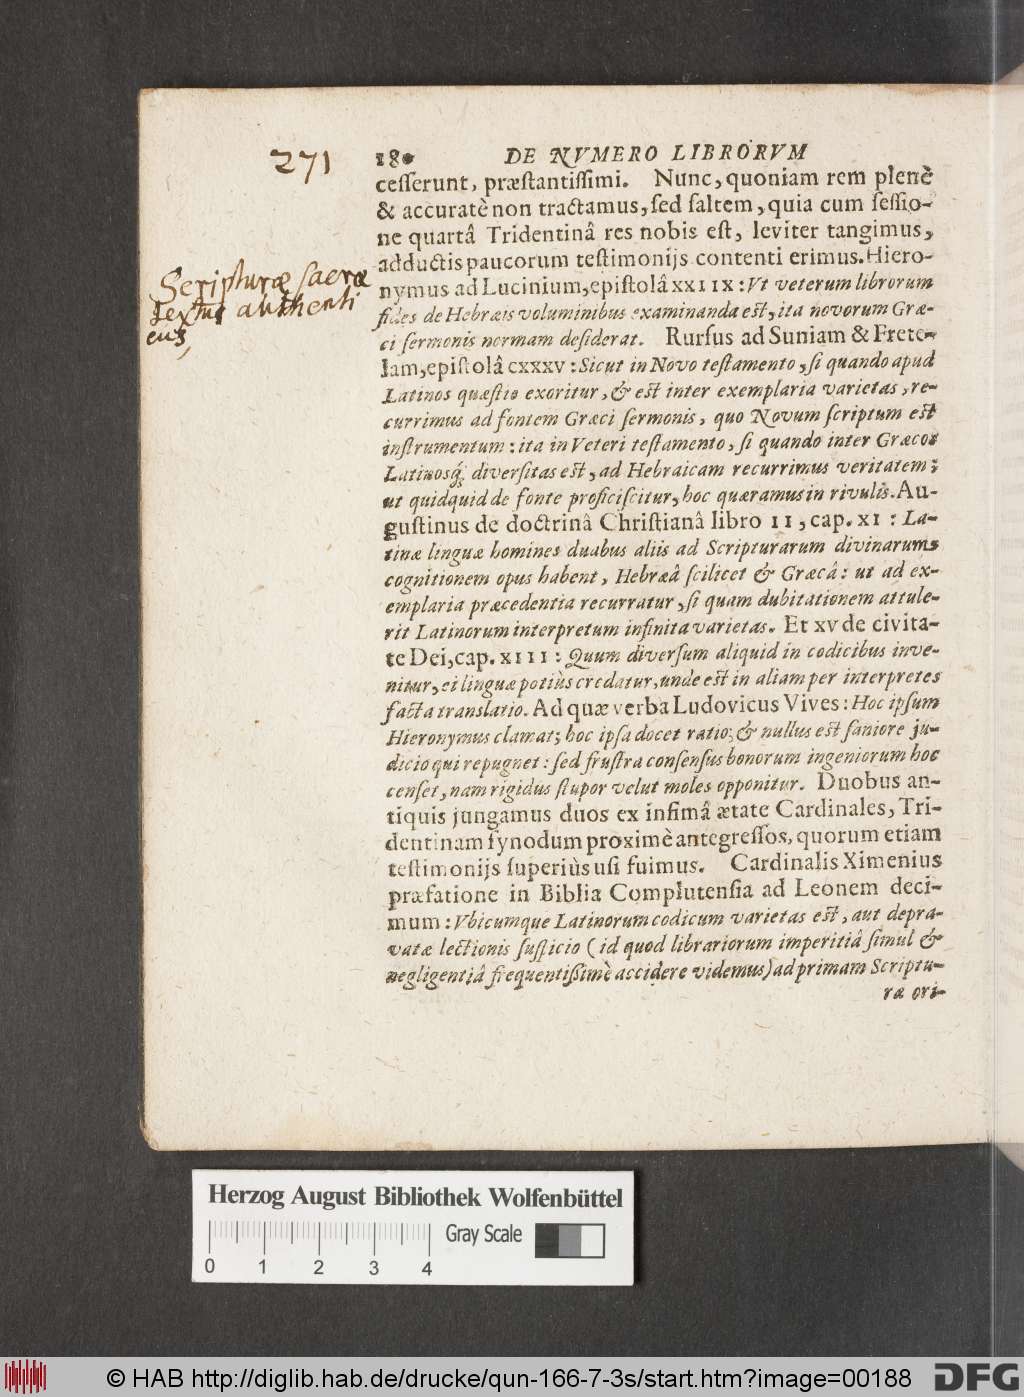 271
180 DE NVMERO LIBRORVM
cesserunt, præstantissimi. Nunc, quoniam rem plenè
& accuratè non tractamus, sed saltem, quia cum sessio-
ne quartâ Tridentinâ res nobis est, leviter tangimus,
adductis paucorum testimonijs contenti erimus. Hiero-
nymus ad Lucinium, epistolâ XXIIX: Vt veterum librorum
fides de Hebræis voluminibus examinanda est, ita novorum Græ-
ci sermonis normam desiderat. Rursus ad Suniam & Frete-
lam, epistolâ CXXXV: Sicut in Novo testamento, si quando apud
Latinos quæstio exoritur, & est inter exemplaria varietas, re-
currimus ad fontem Græci sermonis, quo Novum scriptum est
instrumentum: ita in Veteri testamento, si quando inter Græcos
Latinosq; diversitas est, ad Hebraicam recurrimus veritatem;
ut quidquid de fonte proficiscitur, hoc quæramus in rivulis. Au-
gustinus de doctrinâ Christianâ libro II, cap. XI: La-
tinæ linguæ homines duabus aliis ad Scripturarum divinarum
cognitionem opus habent, Hebræâ scilicet & Græcâ: ut ad ex-
emplaria præcedentia recurratur, si quam dubitationem attule-
rit Latinorum interpretum infinita varietas. Et XV de civita-
te Dei, cap. XIII: Quum diversum aliquid in codicibus inve-
nitur, ei linguæ potiùs credatur, unde est in aliam per interpretes
facta translatio. Ad quæ verba Ludovicus Vives: Hoc ipsum
Hieronymus clamat; hoc ipsa docet ratio; & nullus est saniore ju-
dicio qui repugnet: sed frustra consensus bonorum ingeniorum hoc
censet, nam rigidus stupor velut moles opponitur. Duobus an-
tiquis jungamus duos ex infimâ ætate Cardinales, Tri-
dentinam synodum proximè antegressos, quorum etiam
testimonijs superiùs usi fuimus. Cardinalis Ximenius
præfatione in Biblia Complutensia ad Leonem deci-
mum: Vbicumque Latinorum codicum varietas est, aut depra-
vatæ lectionis suspicio (id quod librariorum imperitiâ simul &
negligentiâ frequentissimè accidere videmus) ad primam Scriptu-
ræ ori-
Scripturæ sacræ
textus authenti
cus,
Herzog August Bibliothek Wolfenbüttel
Gray Scale
0 1 2 3 4
© HAB http://diglib.hab.de/drucke/qun-166-7-3s/start.htm?image=00188
DFG